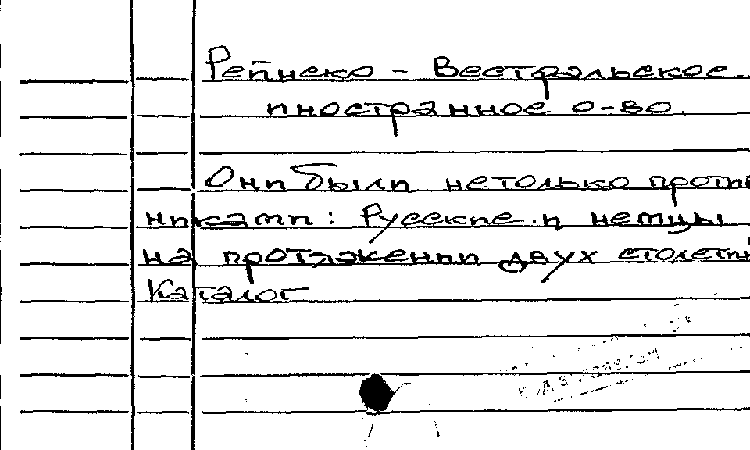 Рейнско - Вестфальское.
иностранное о-во.
Они были нетолько проти
никами: Русские и немцы
на протяжении двух столети
Каталог